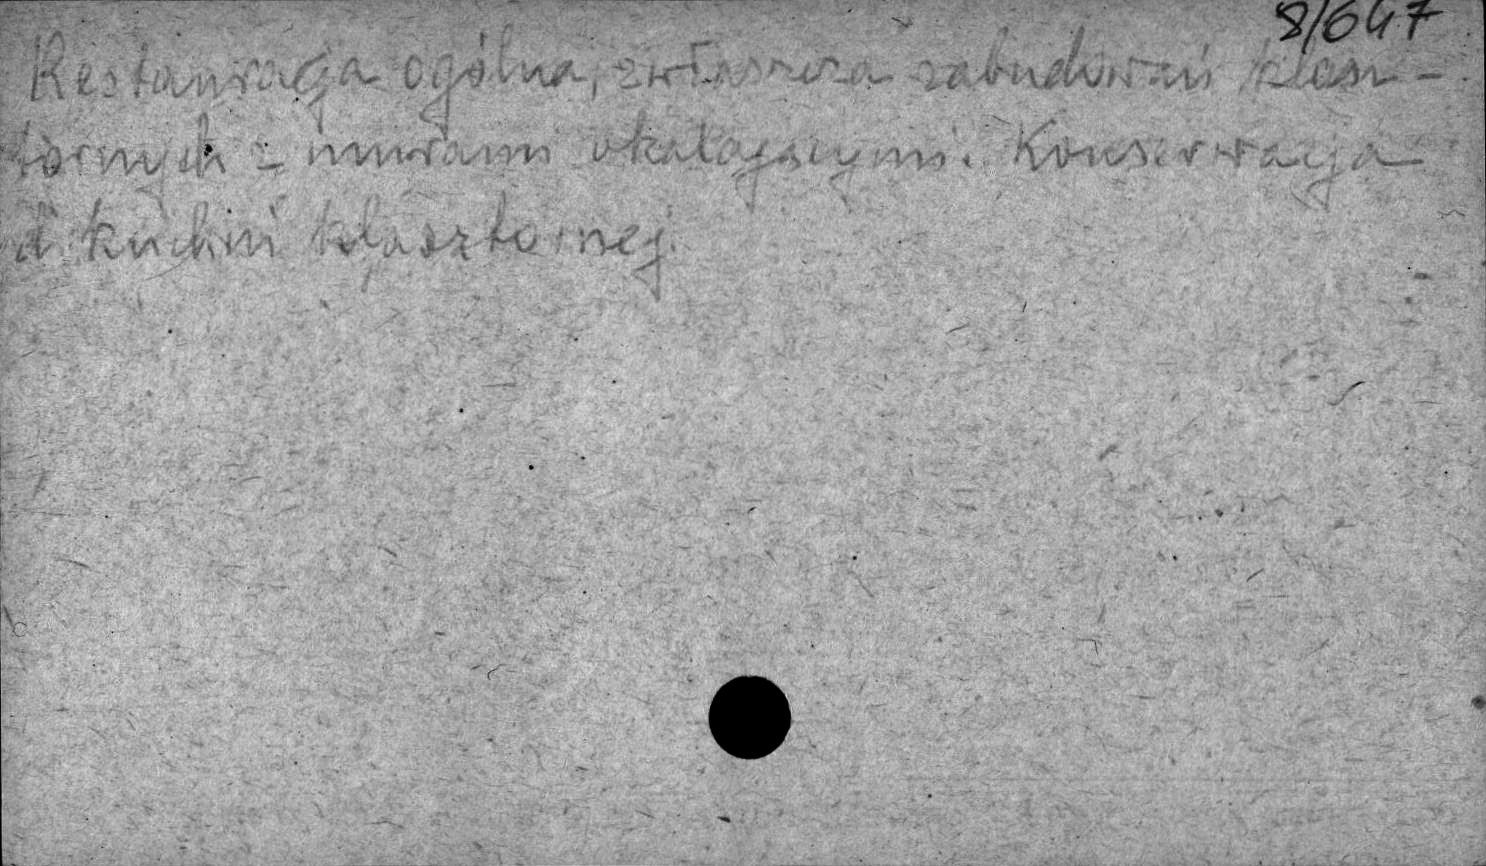 8/647
Restauracja ogólna, zwłaszcza zabudowań klasz-
tornych z murami okalającymi. Konserwacja
d. kuchni klasztornej.